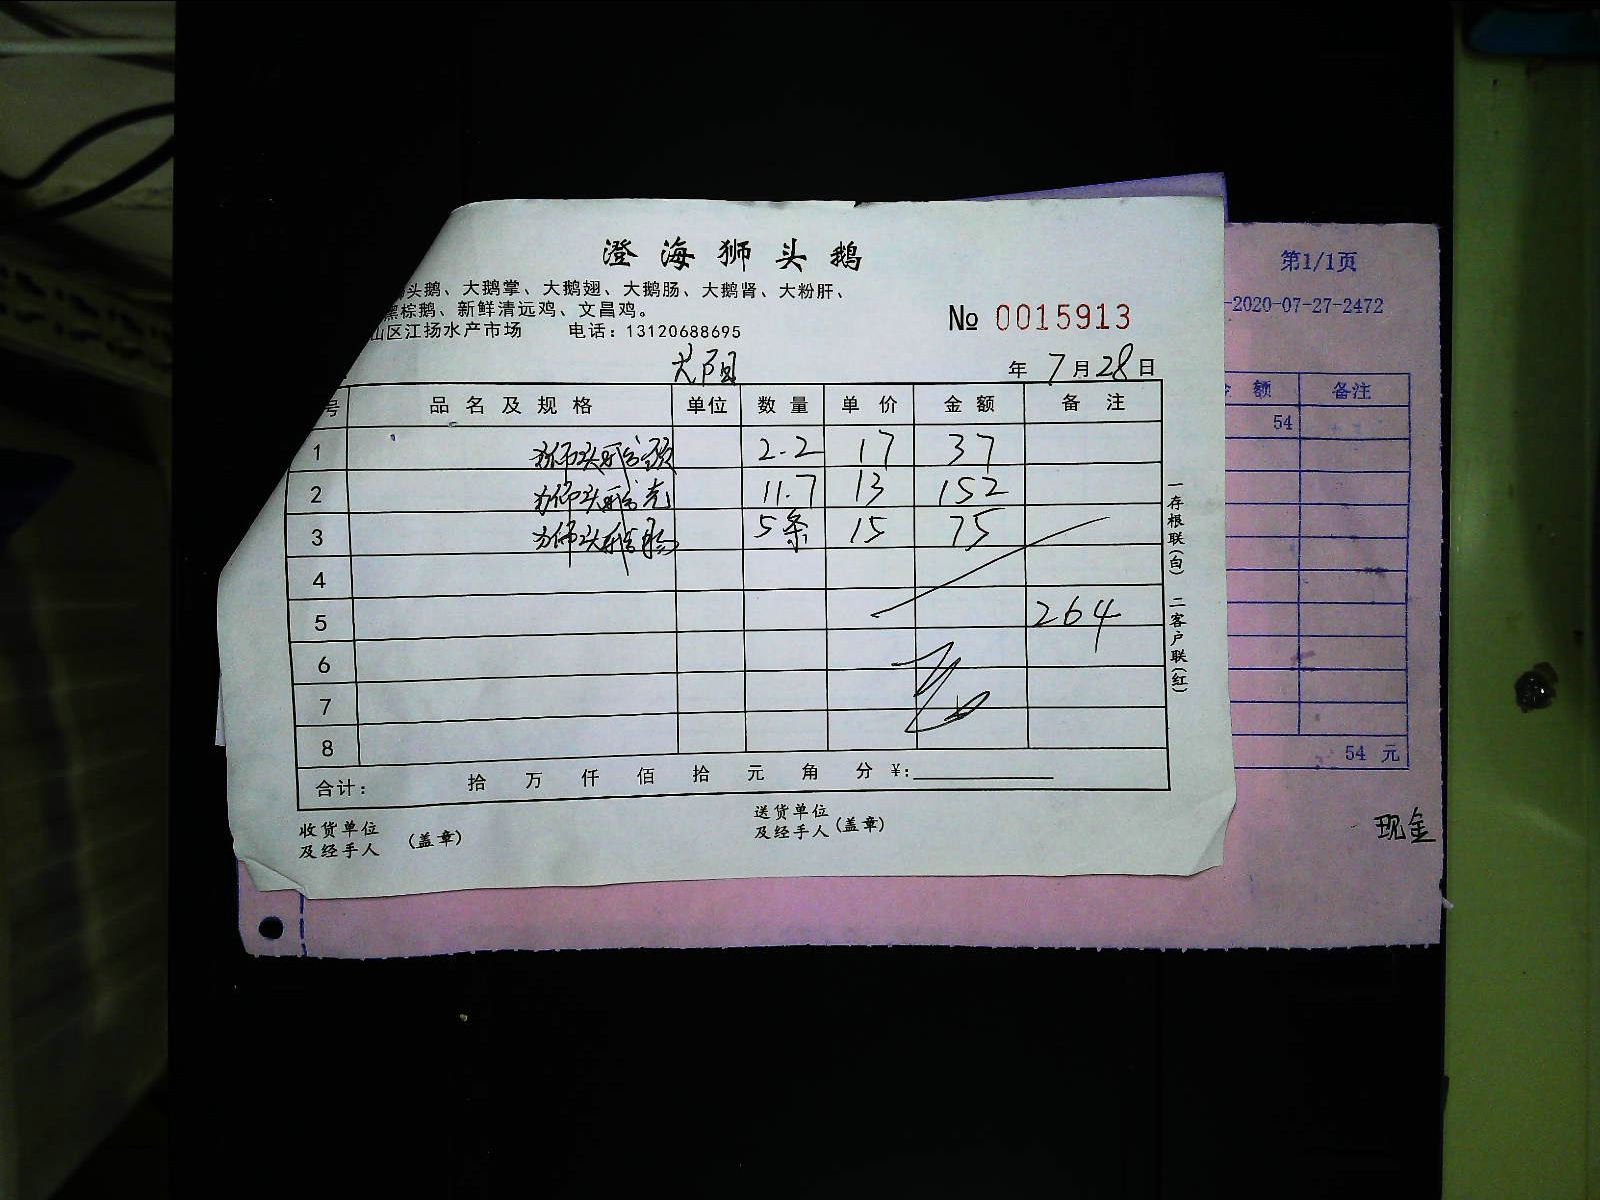 澄海狮头鹅
头鹅、大鹅掌、大鹅翅、大鹅肠、大鹅肾、大粉肝、
棕鹅、新鲜清远鸡、文昌鸡。
山区江扬水产市场 电话：13120688695
№ 0015913
年 7月28日
号 品名及规格 单位 数量 单价 金额 备注
1 狮头鹅头 2.2 17 37
2 狮头鹅壳 11.7 13 152
3 狮头鹅肠 5条 15 75
4
5 264
6
7
8
合计： 拾 万 仟 佰 拾 元 角 分 ¥:
收货单位
及经手人 （盖章）
送货单位
及经手人（盖章）
一存根联（白） 二客户联（红）
第1/1页
-2020-07-27-2472
额 备注
54
54 元
现金